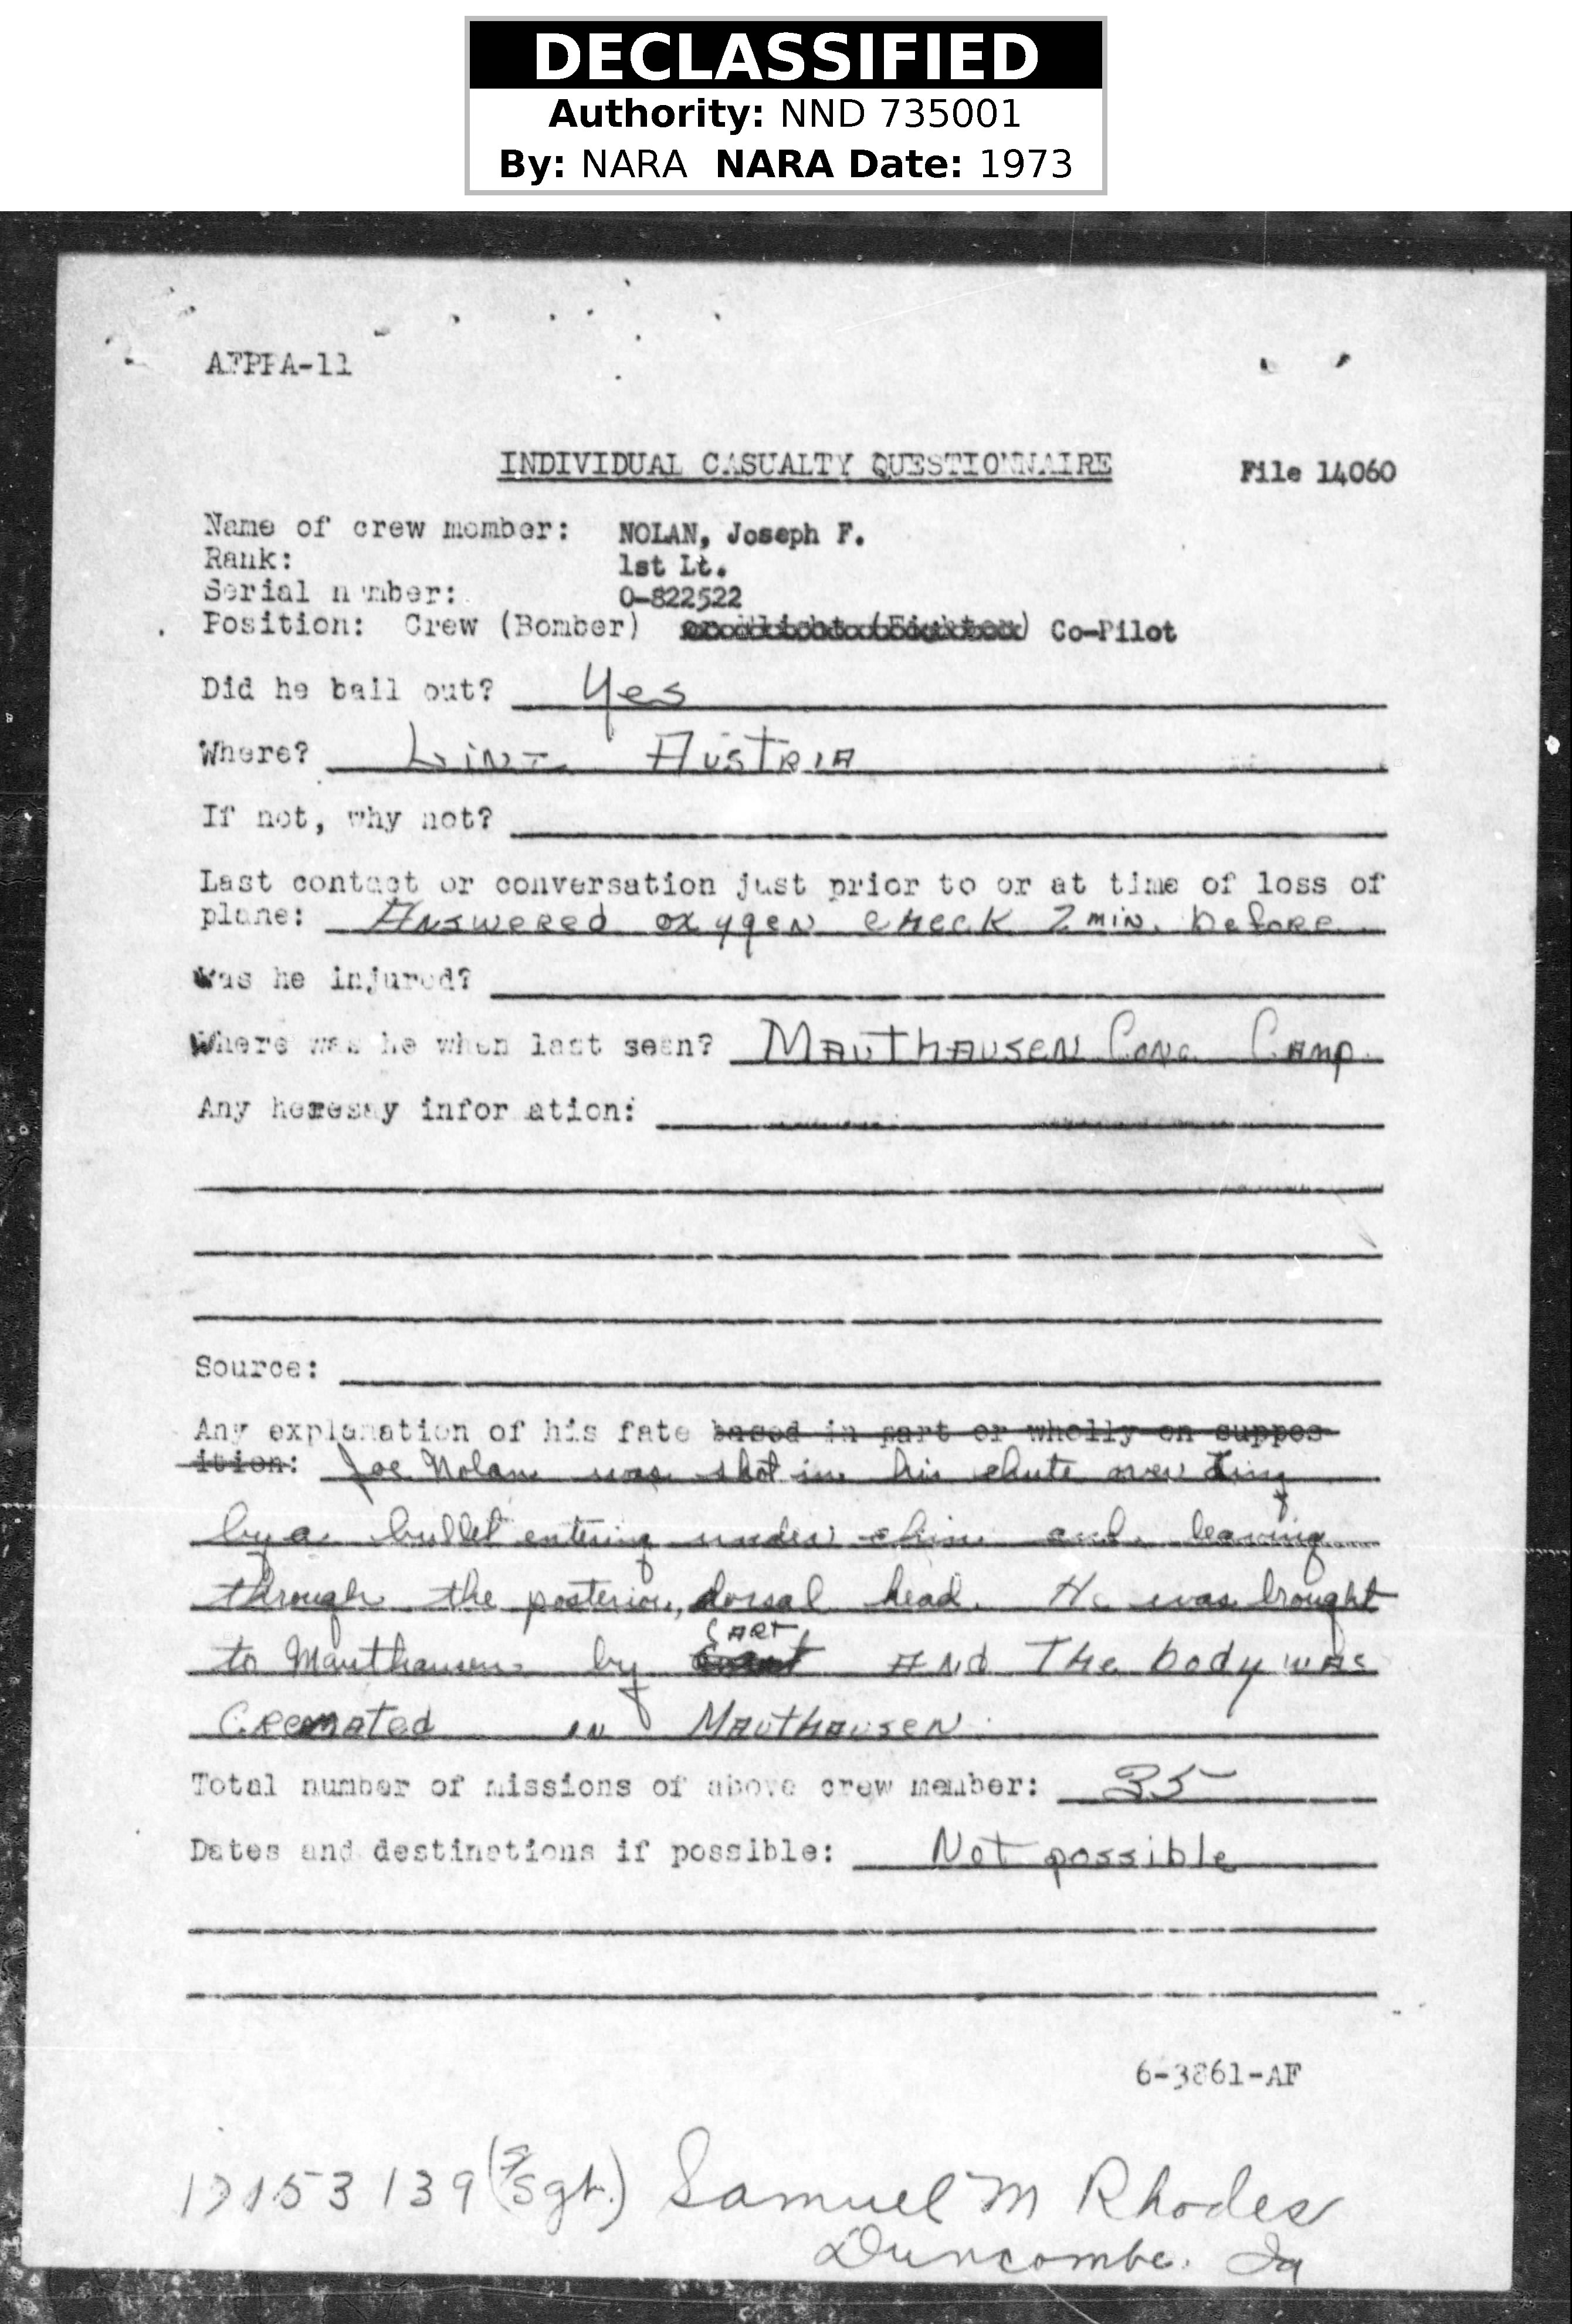 DECLASSIFIED
Authority: NND 735001
By: NARA NARA Date: 1973
AFPPA-11
INDIVIDUAL CASUALTY QUESTIONNAIRE File 14060
Name of crew member: NOLAN, Joseph F.
Rank: 1st Lt.
Serial number: O-822522
Position: Crew (Bomber) or Flight (Fighter) Co-Pilot
Did he bail out? Yes
Where? Linz Austria
If not, why not?
Last contact or conversation just prior to or at time of loss of
plane: Answered oxygen check 2 min. before
Was he injured?
Where was he when last seen? Mauthausen Conc. Camp.
Any heresay infor ation:
Source:
Any explanation of his fate based in part or wholly on suppos-
ition: Joe Nolan was shot in his chute over Linz
by a bullet entering under chin and leaving
through the posterior, dorsal head. He was brought
to Mauthausen by CART And The body was
Cremated in Mauthausen.
Total number of missions of above crew member: 35
Dates and destinations if possible: Not possible
6-3861-AF
17153139 (S/Sgt.) Samuel M Rhodes
Duncombe. Ia